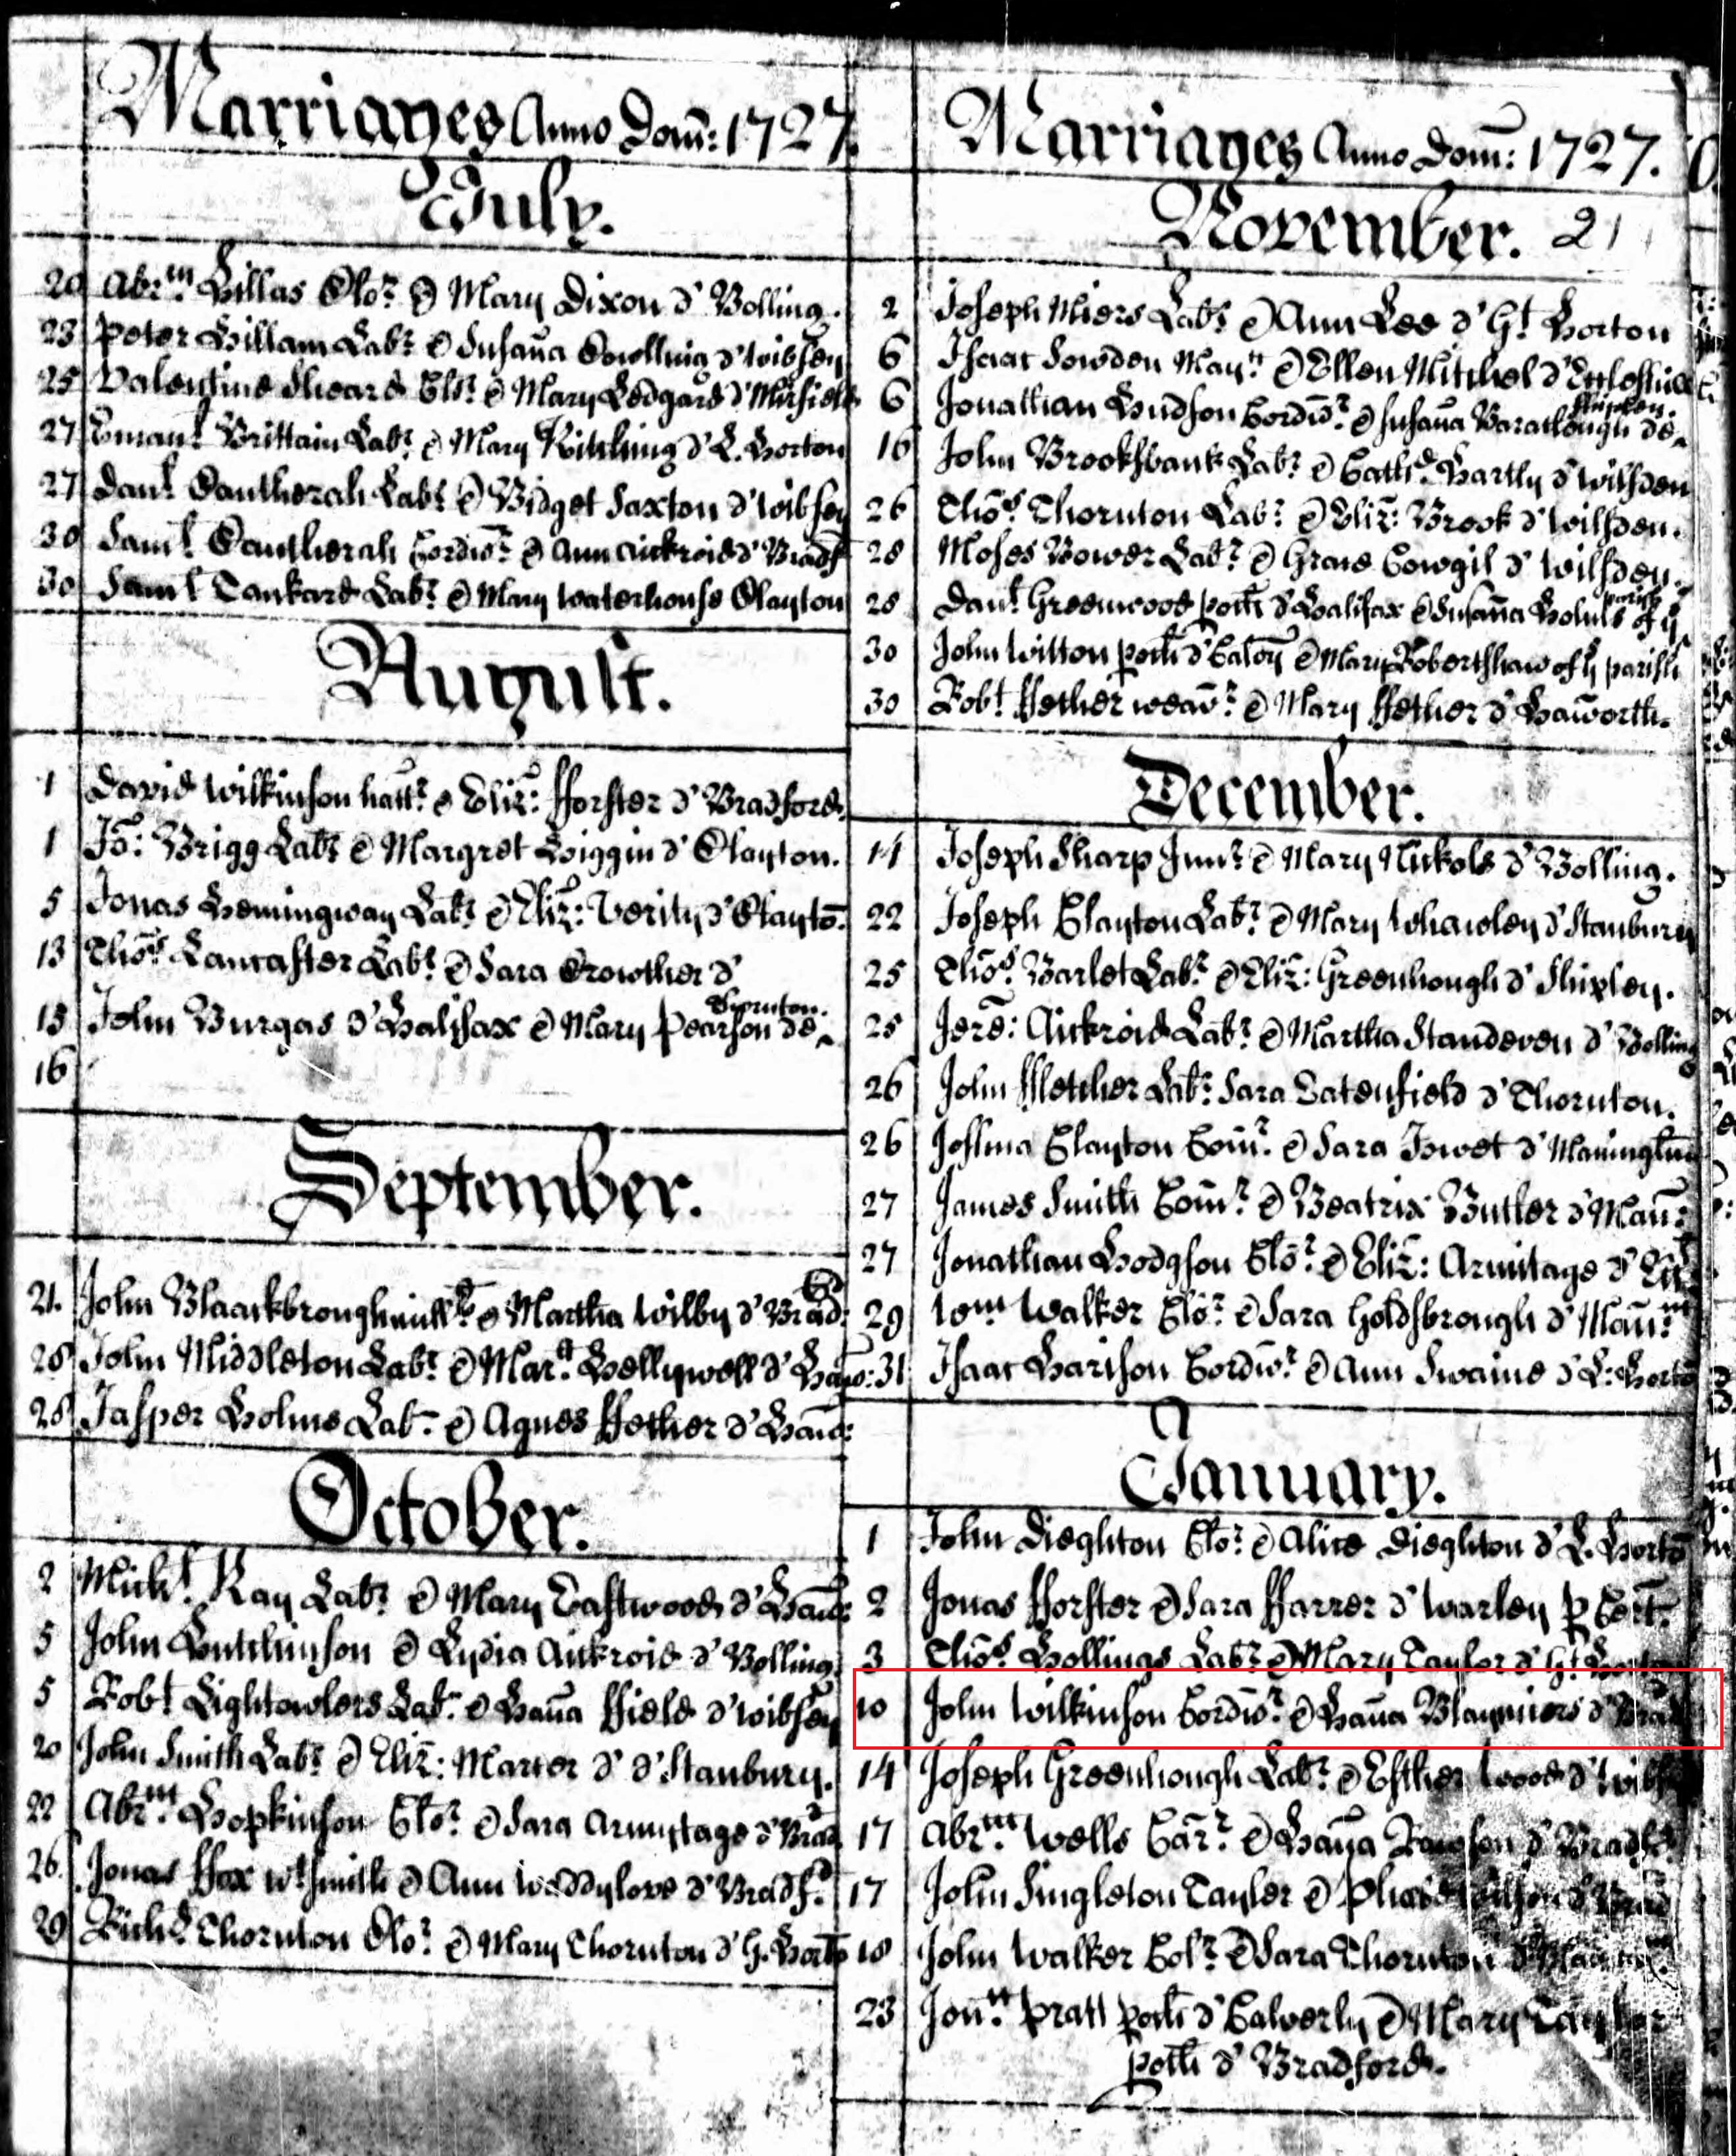 Marriages Anno Dom: 1727
July.
20 Abrm Hillas Clor & Mary Dixon d' Bolling.
23 Peter Hillam Labr & Susana Cowlling d' Wibsey
25 Valentine Sheard Clor & Mary Ledgard d' Mirfield
27 Emanl Brittain Labr & Mary Kitching d' L. Horton
27 Danl Cantherah Labr & Bidget Saxton d' Wibsey
30 Saml Cantherah Cordwr & Ann Aickroid d' Bradf
30 Saml Tankard Labr & Mary Waterhouse Clayton
August.
1 David Wilkinson hattr & Eliz: Forster d' Bradford.
1 Jo: Brigg Labr & Margret Higgin d' Clayton.
5 Jonas Hemingway Labr & Eliz: Verity d' Clayto.
13 Thos Lancaster Labr & Sara Crowther d'
Thornton.
15 John Burgas d' Halifax & Mary Pearson de
16
September.
21. John & Martha Wilby d' Brad:
28 John Middleton Labr & Mart Hellywell d' Haw:
28 Jasper Holms Labr & Agnes ffether d' Haw:
October.
2 Michl Kay Labr & Mary Eastwood d' Haw:
5 John Hutchinson & Lydia Aickroid d' Bolling
5 Robt Lightowlers Labr & Hana ffield d' Wibsey
20 John Smith Labr & Eliz: Marter d' d' Stanbury.
22 Abrm Hopkinson Clor & Sara Armytage d' Brad
26 Jonas ffox Wt Smith & Ann Waddylove d' Bradfd
29 Richd Thornton Clor & Mary Thornton d' G. Horto
Marriages Anno Dom: 1727.
November. 21
2 Joseph Miers Labr & Ann Lee d' Gt Horton
6 Isaac Sowden Mayr & Ellen Mitchel d' Eccleshill
Shipley.
6 Jonathan Hudson Cordwr & Susana Baraclough de
16 John Brooksbank Labr & Cathe Hartly d' Wilsden
26 Thos Thornton Labr & Eliz: Brook d' Wilsden.
28 Moses Bower Labr & Grace Cowgil d' Wilsden.
parish
28 Danl Greenwood poth d' Halifax & Susana Holms of ys
30 John Witton poth d' Mary Robertshaw of ys parish
30 Robt ffether weavr & Mary ffether d' Haworth.
December.
14 Joseph Sharp Junr & Mary Nickols d' Bolling.
22 Joseph Clayton Labr & Mary Whawley d' Stanbury
25 Thos Barlet Labr & Eliz: Greenhough d' Shipley.
25 Jere: Aickroid Labr & Martha Standeven d' Bolling
26 John ffletcher Labr: Sara Tatenfield d' Thornton.
26 Joshua Clayton Comr & Sara Jowet d' Maningham
27 James Smith Comr & Beatrix Butler d' Man:
27 Jonathan Hodgson Clor & Eliz: Armitage d'
29 Wm Walker Clor & Sara Goldsbrough d' Man:m
31 Isaac Harison Cordwr & Ann Swaine d' L: Horto
January.
1 John Dieghton Clor & Alice Dieghton d' L. Horto
2 Jonas fforster & Sara ffarrer d' Warley p Cert.
3 Thos Hollings Labr & Mary Taylor d' Gt Horton
10 John Wilkinson Cordwr & Hana Blaymiers d' Brad
14 Joseph Greenhough Labr & Esther Wood d' Wibs
17 Abrm Wells Carr & Hana d' Bradfd
17 John Singleton Tayler &
18 John Walker Colr & Sara Thornton d'
23 Jontt Pratt poth d' Calverly & Mary
poth d' Bradford.